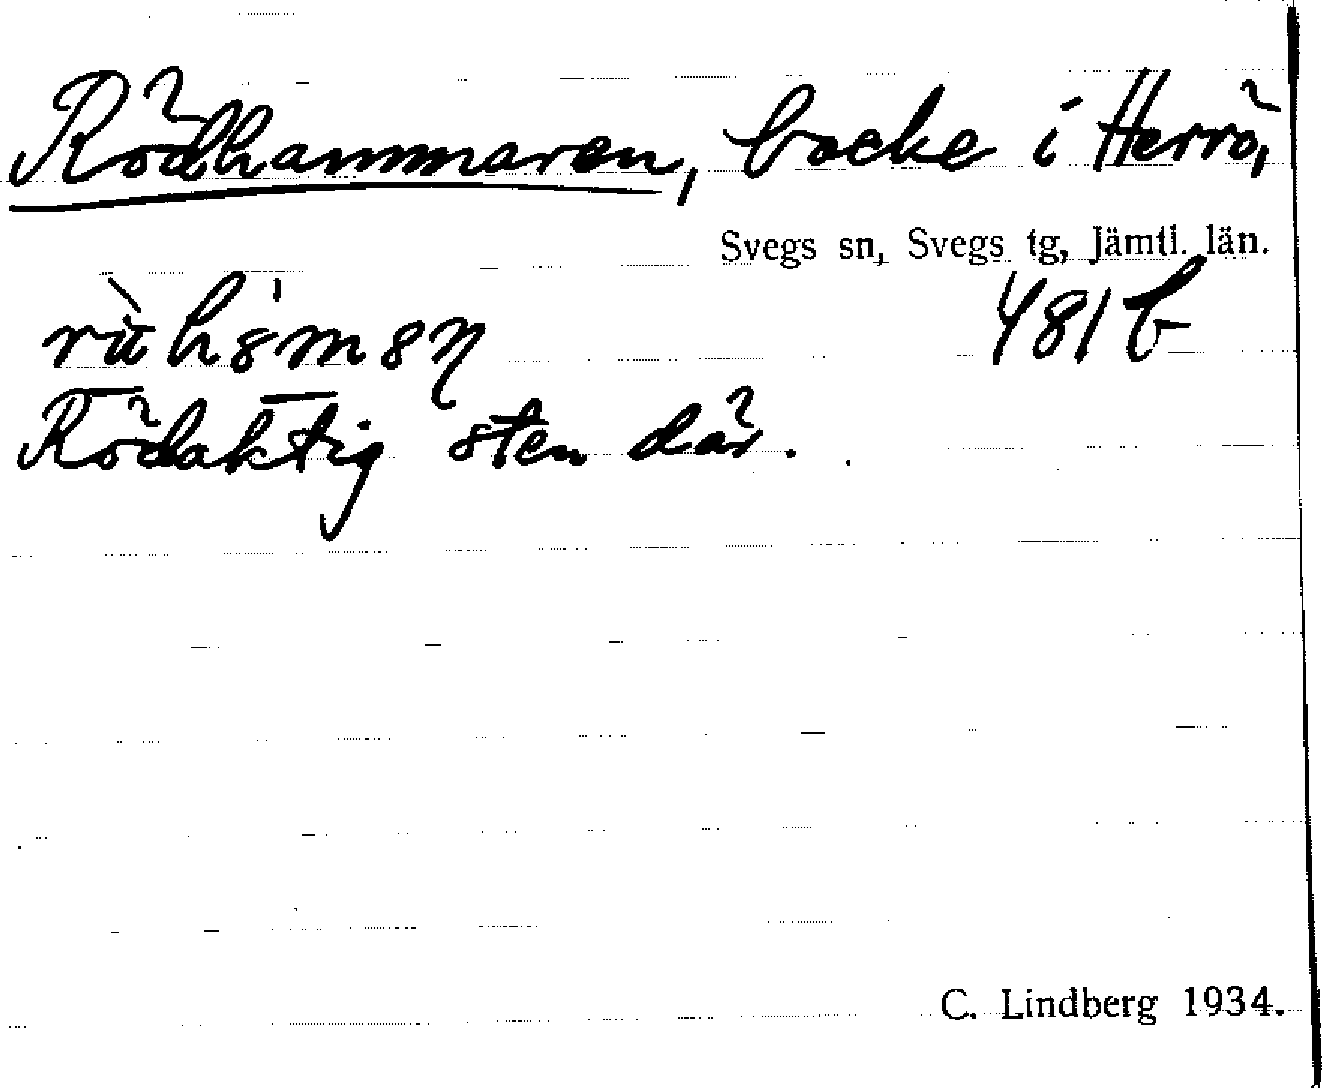 Rödhammaren, backe i Herrö,
Svegs sn, Svegs tg, Jämtl. län.
481 b
Rödaktig sten där.
C. Lindberg 1934.